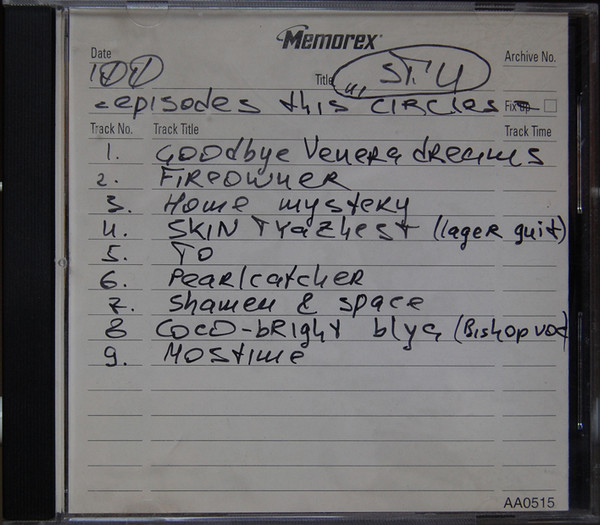 Memorex
Date
Archive No.
Title
STU
episodes this CIRCLES
Fix up
Track No. Track Title Track Time
1. GOODbye Venera dreams
2. Fireowner
3. Home mystery
4. SKIN TYAZHEST (lager guit)
5. TO
6. Pearlcatcher
7. Shamen & space
8 COCO-bRight blya (Bishop voc)
9. MOSTIME
AA0515